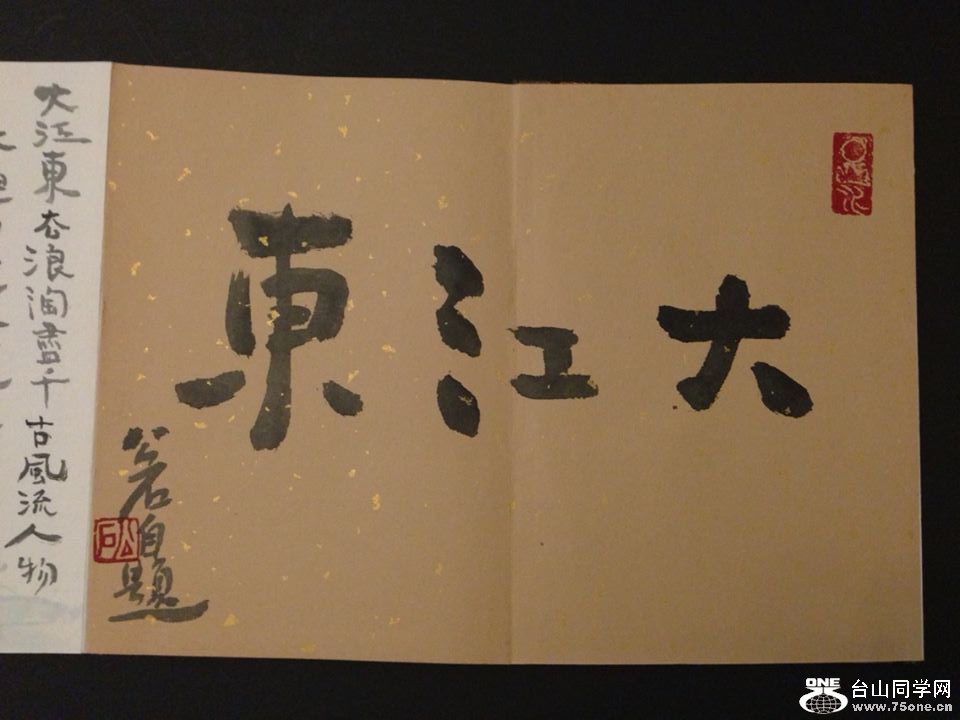 大江東
自題
大江東去浪淘盡千古風流人物
ONE
台山同学网
www.75one.cn